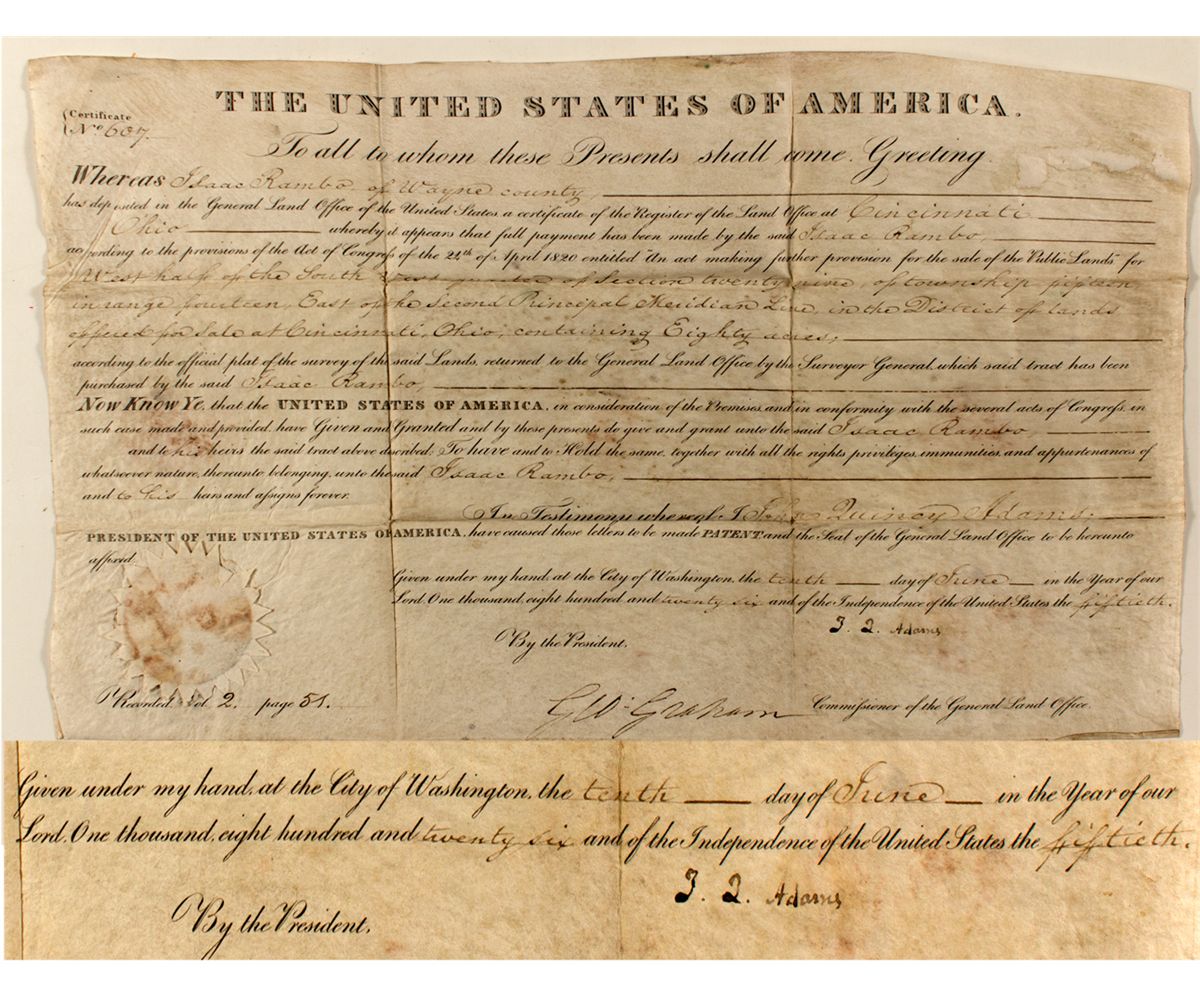 THE UNITED STATES OF AMERICA.
Certificate
No 607.
To all to whom these Presents shall come, Greeting
Whereas Isaac Rambo of Wayne county,
has deposited in the General Land Office of the United States, a certificate of the Register of the Land Office at Cincinnati
Ohio whereby it appears that full payment has been made by the said Isaac Rambo,
according to the provisions of the Act of Congress of the 24th of April 1820 entitled "An act making further provision for the sale of the Public Lands" for
West half of the South West quarter of Section twenty nine, of township fifteen,
in range fourteen, East of the Second Principal Meridian Line, in the District of lands
offered for sale at Cincinnati, Ohio, containing Eighty acres,
according to the official plat of the survey of the said Lands, returned to the General Land Office by the Surveyor General, which said tract has been
purchased by the said Isaac Rambo,
Now Know Ye, that the UNITED STATES OF AMERICA, in consideration of the Premises, and in conformity with the several acts of Congress, in
such case made and provided, have Given and Granted and by these presents do give and grant unto the said Isaac Rambo
and to his heirs the said tract above described, To have and to Hold the same, together with all the rights privileges, immunities, and appurtenances of
whatsoever nature, thereunto belonging, unto the said Isaac Rambo,
and to his heirs and assigns forever.
In Testimony whereof, I John Quincy Adams.
PRESIDENT OF THE UNITED STATES OF AMERICA, have caused those letters to be made PATENT, and the Seal of the General Land Office to be hereunto
affixed.
Given under my hand, at the City of Washington, the tenth day of June in the Year of our
Lord, One thousand, eight hundred and twenty six and of the Independence of the United States the fiftieth.
J. Q. Adams
By the President,
Recorded, Vol. 2. page 51.
G W. Graham Commissioner of the General Land Office.
Given under my hand, at the City of Washington, the tenth day of June in the Year of our
Lord, One thousand, eight hundred and twenty six and of the Independence of the United States the fiftieth.
J. Q. Adams
By the President,